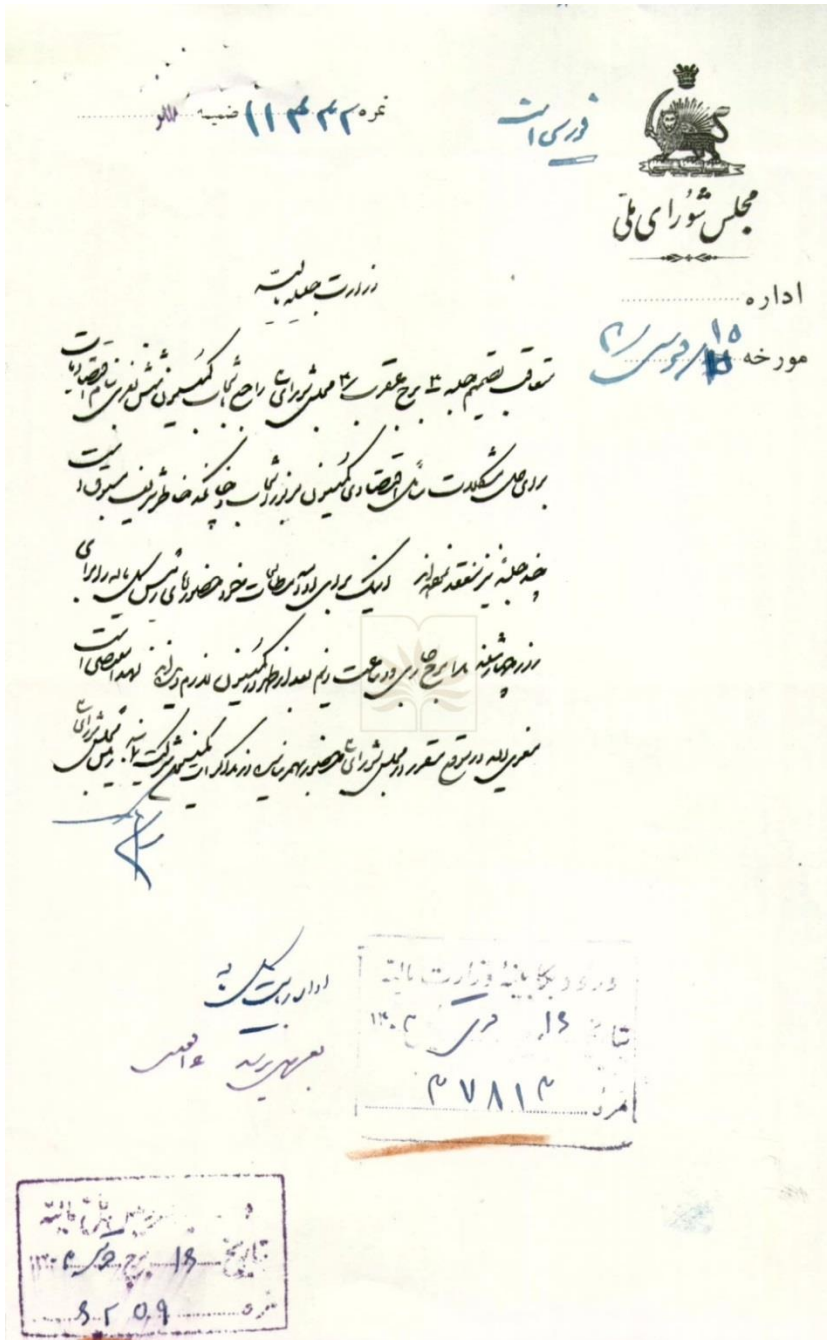 مجلس شورای ملی
نمره ۱۱۴۴۲ ضمیمه
فوری است
اداره
مورخه ۱۵ قوس ۳
وزارت جلیله مالیه
متعاقب تصمیم جلسه ۳ برج عقرب ۳ مجلس شورای ملی راجع بانتخاب کمیسیون شش نفری بنام اقتصادیات
برای حل مشکلات مسائل اقتصادی کمیسیون مزبور انتخاب و چنانکه خاطر شریف مسبوق است
چند جلسه نیز منعقد نموده‌اند اینک برای ادامه مطالعات خود حضور آقای رئیس کل مالیه را برای
روز چهارشنبه ۱۸ برج جاری دو ساعت و نیم بعد از ظهر در کمیسیون لازم میدانند لهذا مقتضی است
معزی الیه در موقع مقرر در مجلس شورای ملی حضور بهم رسانیده در مذاکرات کمیسیون شرکت نمایند. رئیس مجلس شورای ملی
اداره ریاست کل مالیه
ورود بکابینه وزارت مالیه
تاریخ ۱۶ قوس ۱۳۰۳
نمره ۳۷۸۱۳
مالیه
تاریخ ۱۶ برج قوس ۱۳۰۳
نمره ۶۲۵۹